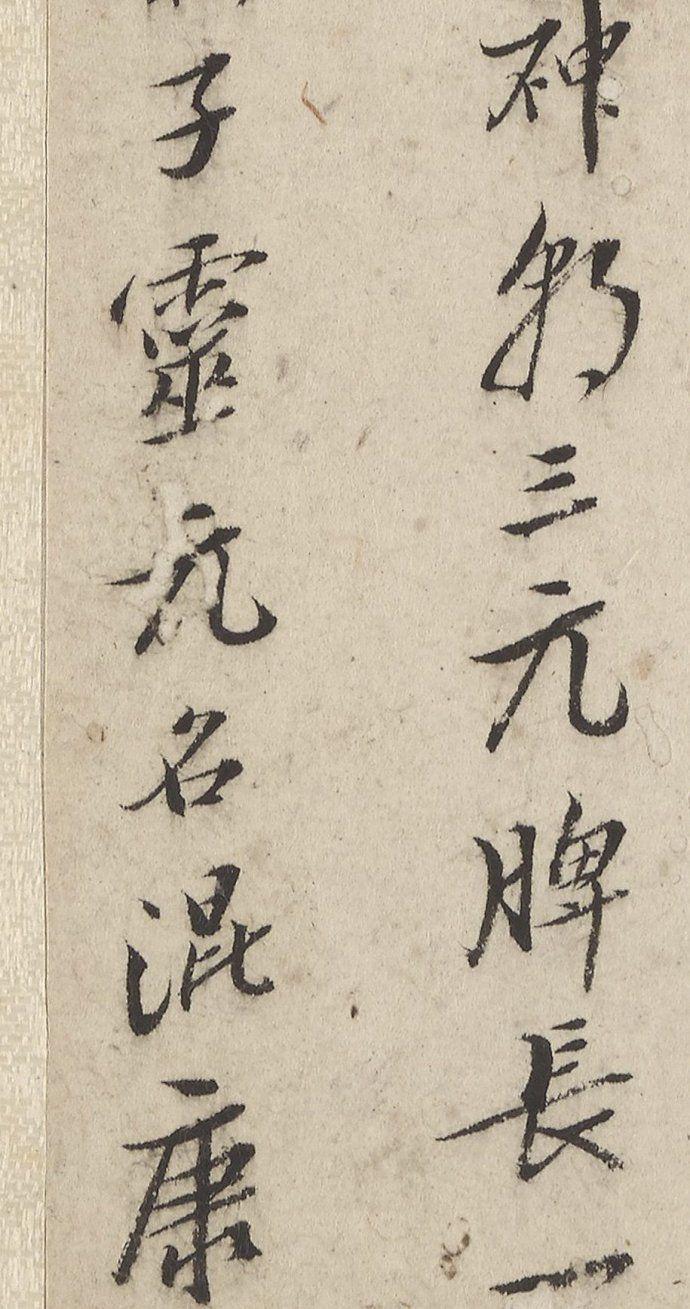 神朝三元脾長一
子靈元名混康